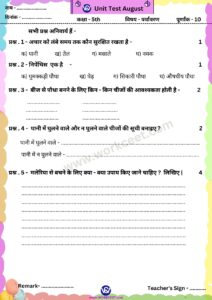 नाम -
Unit Test August
दिनांक -
कक्षा - 5th विषय - पर्यावरण पूर्णांक - 10
सभी प्रश्न अनिवार्य हैं -
प्रश्न . 1 - अचार को लंबे समय तक कौन सुरक्षित रखता है - 1
क) पानी ख) तेल ग) मसाले घ) नमक
प्रश्न . 2 - निपेंथिस एक है - 1
क) घुमक्कड़ी पौधा ख) पेड़ ग) शिकारी पौधा घ) औषधीय पौधा
प्रश्न . 3 - बीज से पौधा बनने के लिए किन - किन चीजों की आवश्यकता होती है - 2
प्रश्न . 4 - पानी में घुलने वाले और न घुलने वाले चीजों की सूची बनाइए ? 2
पानी में घुलने वाले -
पानी में न घुलने वाले -
प्रश्न . 5 - मलेरिया से बचने के लिए क्या - क्या उपाय किए जाने चाहिए ? लिखिए | 4
www.workceet.com
Remark- Teacher's Sign -